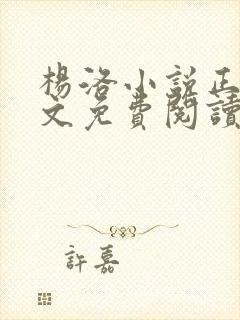 楊洛小說正
文免費閱讀
許嘉